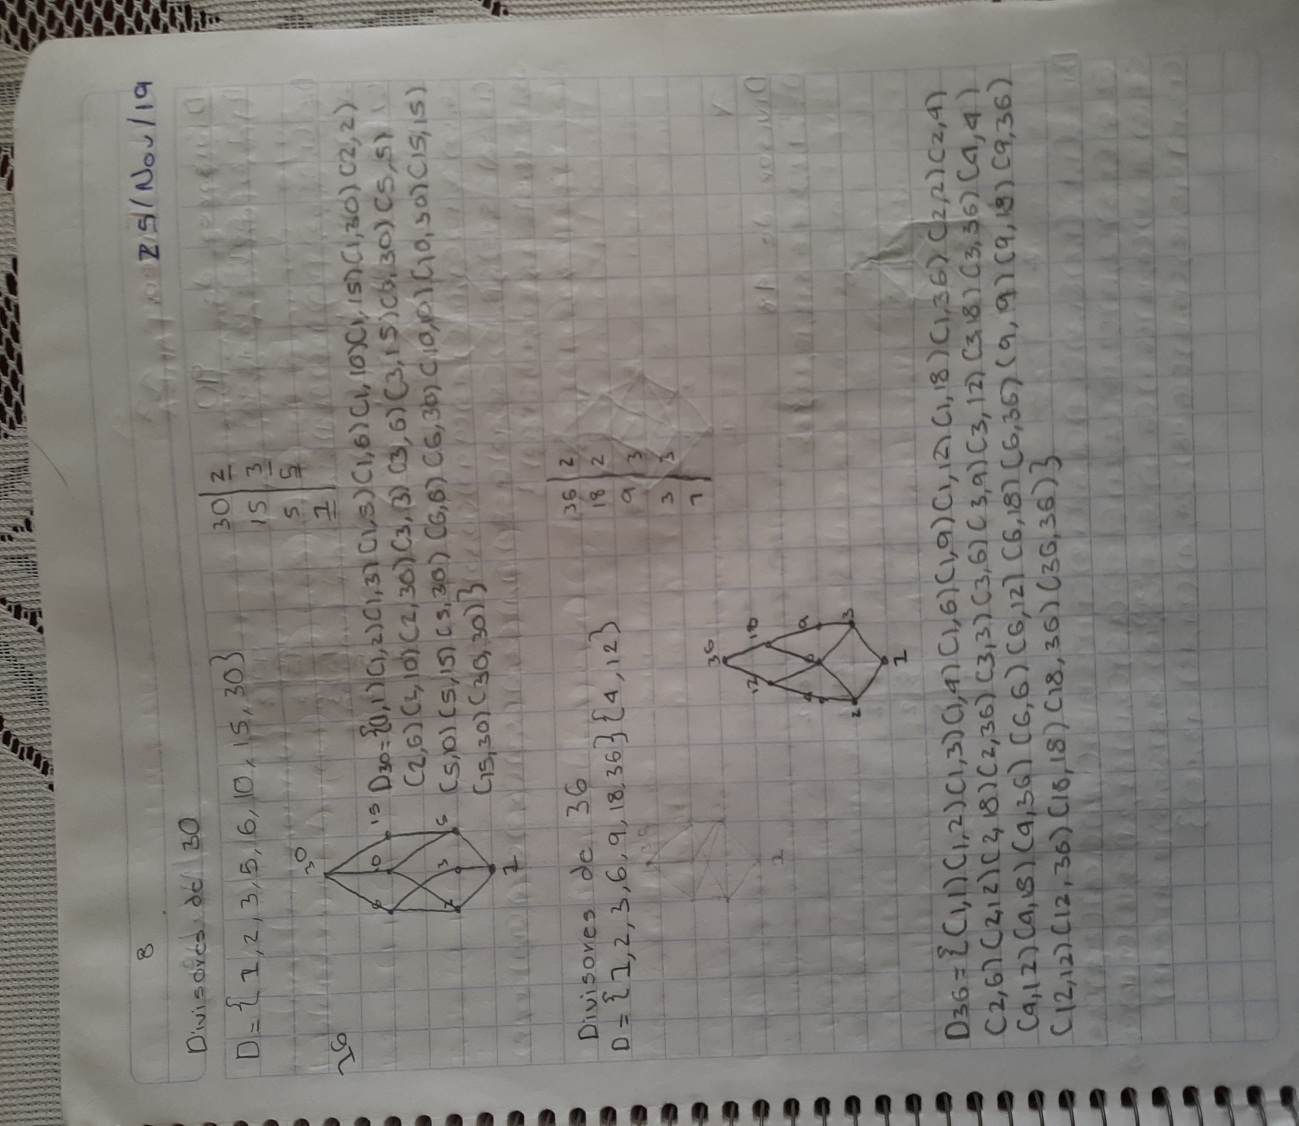 8
25/Nov/19
Divisores de 30
D={1,2,3,5,6,10,15,30}
30 2
15 3
5 5
1
26
30
6 10 15
2 3 5
1
D30={(1,1)(1,2)(1,3)(1,5)(1,6)(1,10)(1,15)(1,30)(2,2)
(2,6)(2,10)(2,30)(3,3)(3,6)(3,15)(3,30)(5,5)
(5,10)(5,15)(5,30)(6,6)(6,30)(10,10)(10,30)(15,15)
(15,30)(30,30)}
Divisores de 36
D={1,2,3,6,9,18,36}{4,12}
36 2
18 2
9 3
3 3
1
36
12 18
4 6 9
2 3
1
D36={(1,1)(1,2)(1,3)(1,4)(1,6)(1,9)(1,12)(1,18)(1,36)(2,2)(2,4)
(2,6)(2,12)(2,18)(2,36)(3,3)(3,6)(3,9)(3,12)(3,8)(3,36)(4,4)
(4,12)(4,18)(4,36)(6,6)(6,12)(6,18)(6,36)(9,9)(9,18)(9,36)
(12,12)(12,36)(18,18)(18,36)(36,36)}